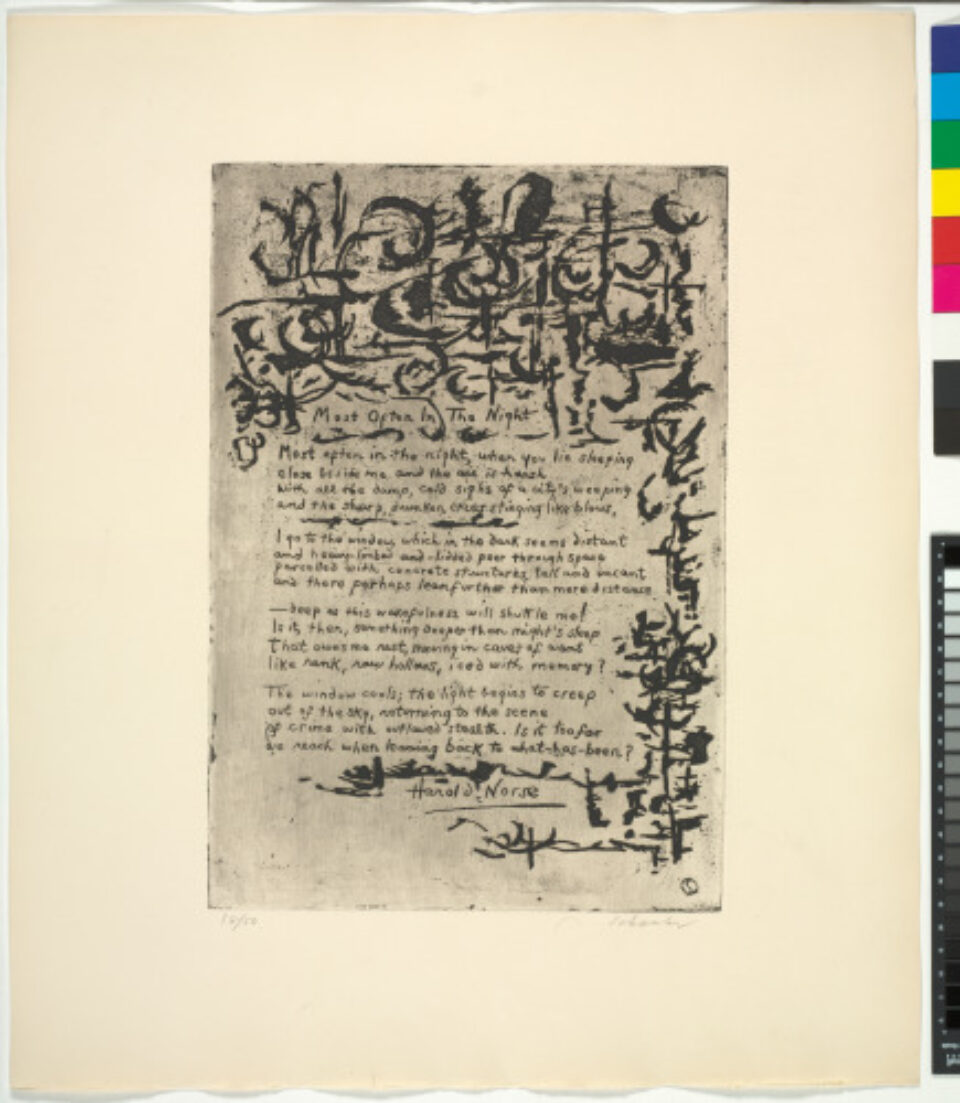 Most Often In The Night
Most often in the night, when you lie sleeping
close beside me and the air is harsh
with all the damp, cold sighs of a city's weeping
and the sharp, drunken, cries stinging like blows,
I go to the window, which in the dark seems distant
and heavy-limbed and -lidded peer through space
parcelled with concrete structures, tall and vacant
and there perhaps lean further than mere distance
—deep as this wakefulness will shuttle me!
Is it, then, something deeper than night's sleep
That owes me rest, moving in caves of want
like rank, raw hollows, iced with memory?
The window cools; the light begins to creep
out of the sky, returning to the scene
of crime with outlawed stealth. Is it too far
we reach when leaning back to what-has-been?
Harold Norse
/50